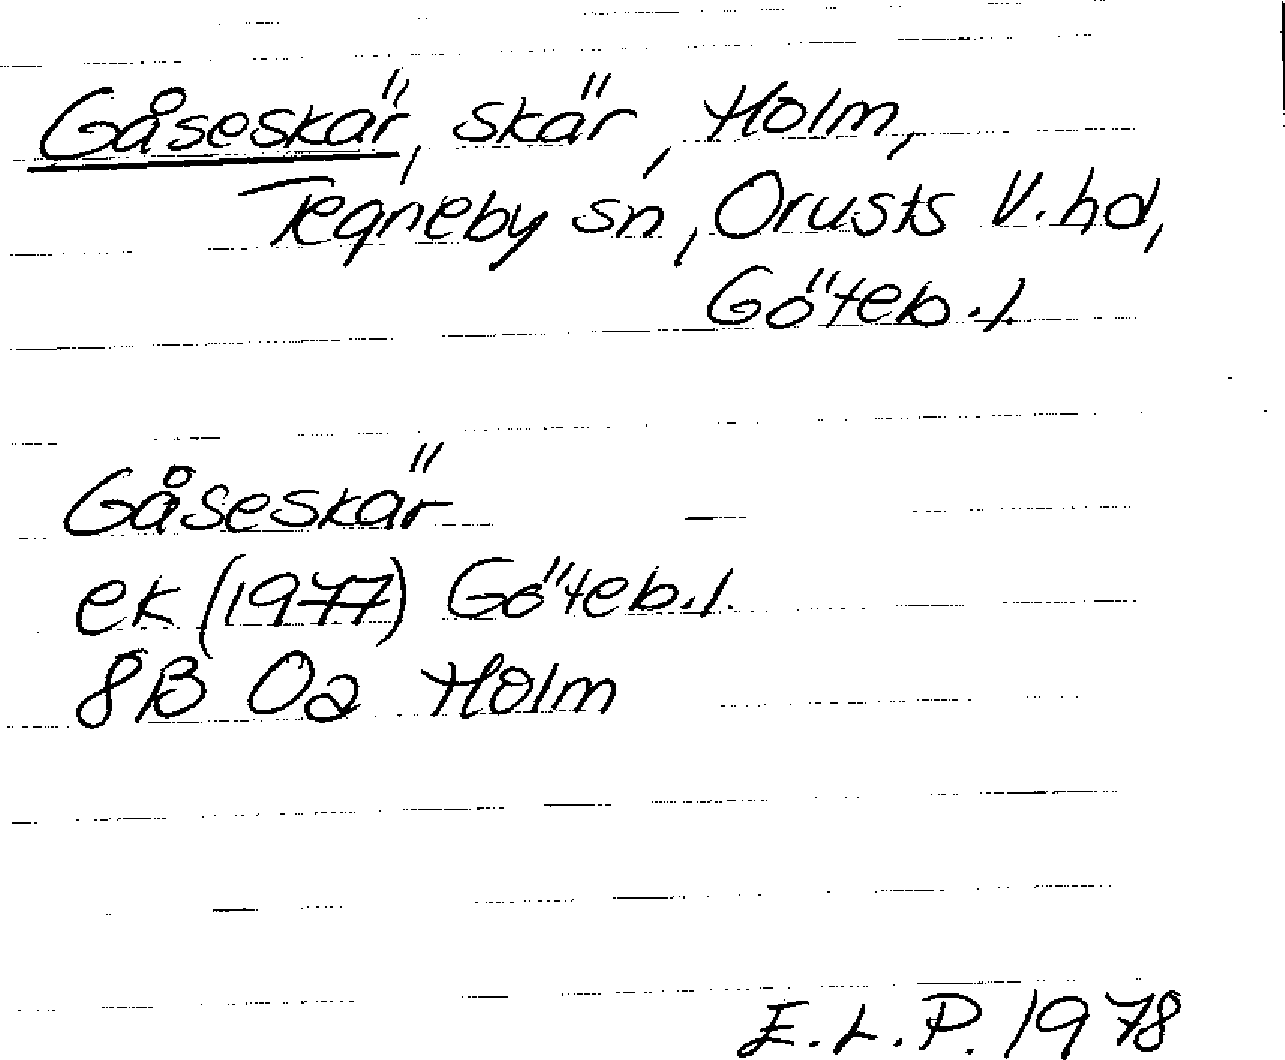 Gåseskär, skär, Holm,
Tegneby sn, Orusts V. hd,
Göteb. l.
Gåseskär
ek (1977) Göteb. l.
8B 0a Holm
E.L.P. 1978